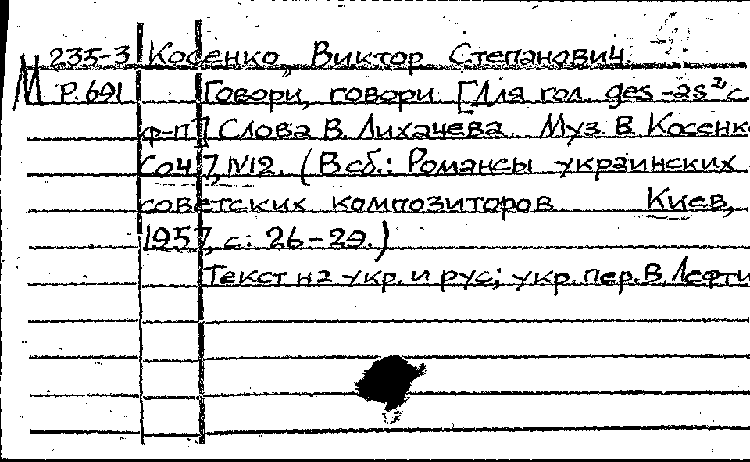 235-3 Косенко, Виктор Степанович.
М Р.691 Говори, говори [Для гол. ges-as² с
ф-п] Слова В. Лихачева. Муз В. Косенк
Соч 7, №2. (В сб.: Романсы украинских
советских композиторов Киев,
1957, с. 26-29.)
Текст на укр. и рус; укр. пер. В. Лефти